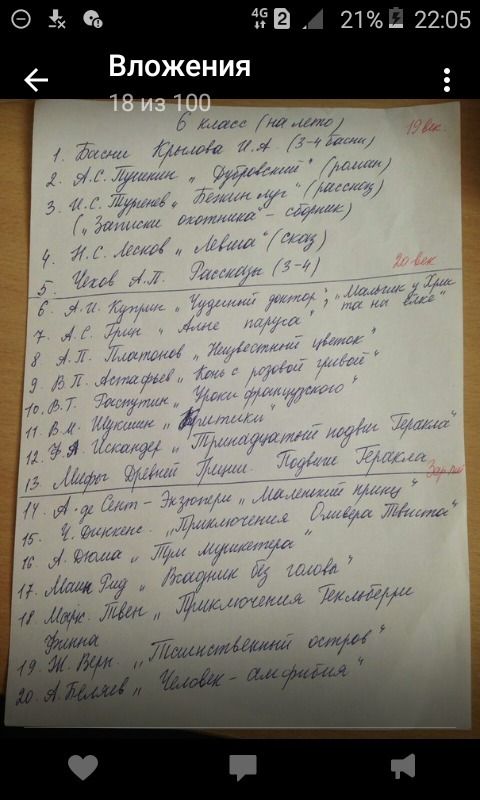 4G 2 21% 22:05
Вложения
18 из 100
6 класс (на лето)
19 век.
1. Басни Крылова И.А. (3-4 басни)
2. А.С. Пушкин „Дубровский" (роман)
3. И.С. Тургенев „Бежин луг" (рассказ)
(„Записки охотника" - сборник)
4. Н.С. Лесков „Левша" (сказ)
5. Чехов А.П. Рассказы (3-4)
20 век
6. А.И. Куприн „Чудесный доктор", „Мальчик у Хрис
та на ёлке"
7. А.С. Грин „Алые паруса"
8. А.П. Платонов „Неизвестный цветок"
9. В.П. Астафьев „Конь с розовой гривой"
10. В.Г. Распутин „Уроки французского"
11. В.М. Шукшин „Критики"
12. Ф.А. Искандер „Тринадцатый подвиг Геракла"
13. Мифы Древней Греции. Подвиги Геракла
14. А. де Сент-Экзюпери „Маленький принц"
15. Ч. Диккенс. „Приключения Оливера Твиста"
16. А. Дюма „Три мушкетера"
17. Майн Рид „Всадник без головы"
18. Марк. Твен „Приключения Гекльберри
Финна
19. Ж. Верн. „Таинственный остров"
20. А. Беляев „Человек-амфибия"